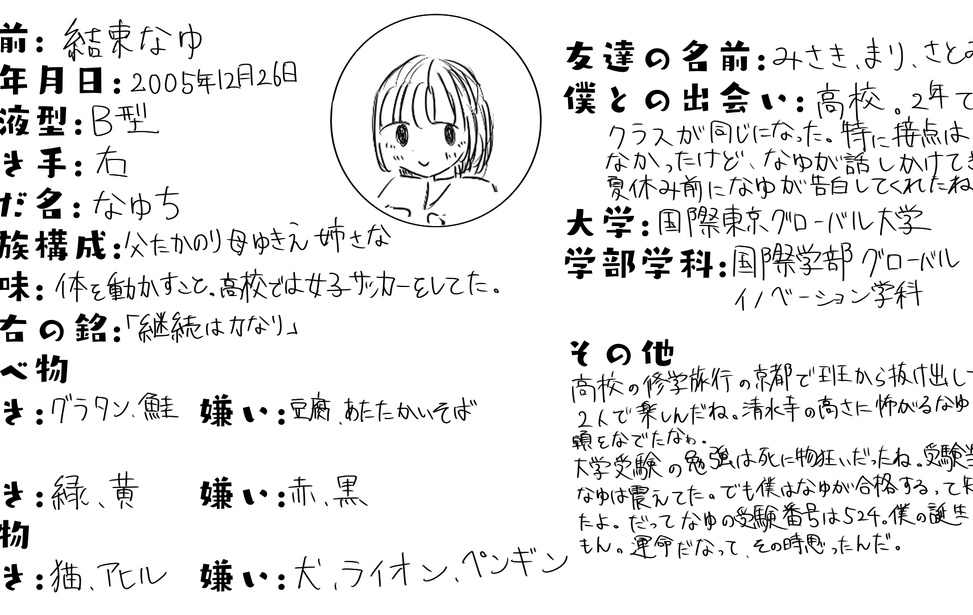 前：結束なゆ
年月日：2005年12月26日
液型：B型
き手：右
だ名：なゅち
族構成：父たかのり母ゆきえ 姉さな
味：体を動かすこと。高校では女子サッカーをしてた。
右の銘：「継続は力なり」
べ物
き：グラタン、鮭 嫌い：豆腐、あたたかいそば
き：緑、黄 嫌い：赤、黒
物
き：猫、アヒル 嫌い：犬、ライオン、ペンギン
友達の名前：みさき、まり、さとみ
僕との出会い：高校。2年で
クラスが同じになった。特に接点は
なかったけど、なゆが話しかけてき
夏休み前になゆが告白してくれたね
大学：国際東京グローバル大学
学部学科：国際学部 グローバル
イノベーション学科
その他
高校の修学旅行の京都で班から抜け出し
2人で楽しんだね。清水寺の高さに怖がるなゆ
頭をなでたなぁ。
大学受験の勉強は死に物狂いだったね。受験当
なゆは震えてた。でも僕はなゆが合格するって
たよ。だってなゆの受験番号は524。僕の誕生
もん。運命だなって、その時思ったんだ。